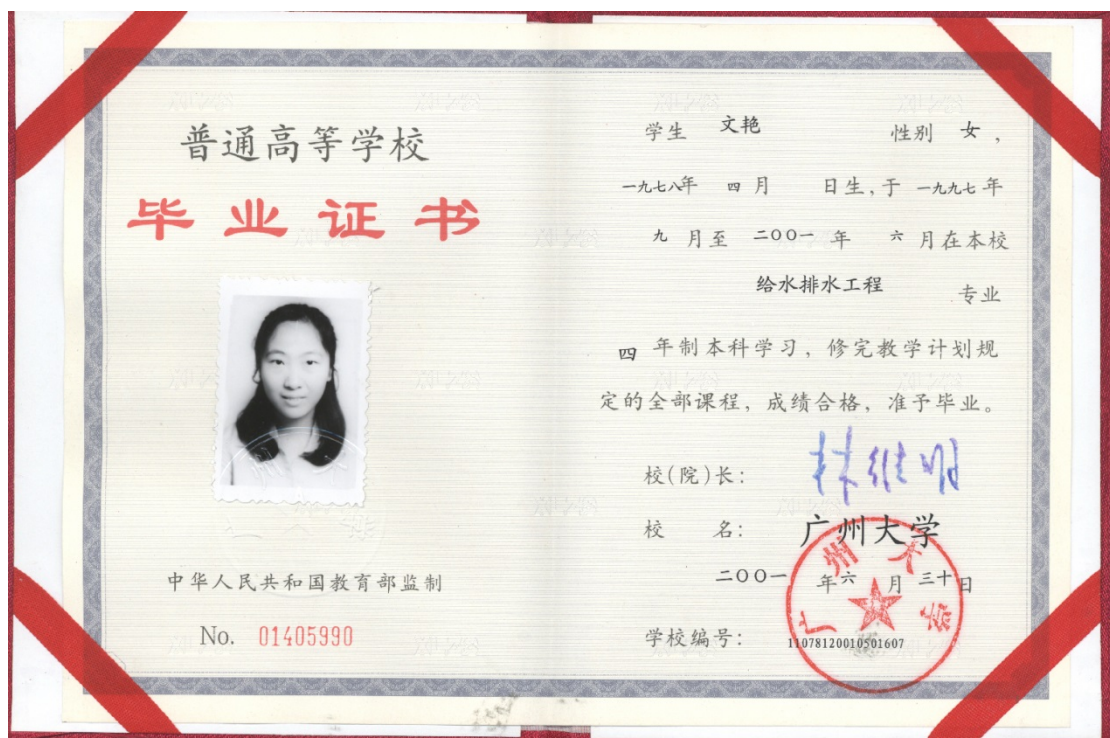 普通高等学校
毕业证书
中华人民共和国教育部监制
No. 01405990
学生 文艳 性别 女，
一九七八年 四月 日生，于 一九九七年
九 月至 二〇〇一 年 六 月在本校
给水排水工程 专业
四 年制本科学习，修完教学计划规
定的全部课程，成绩合格，准予毕业。
校(院)长： 林维明
校 名： 广州大学
二〇〇一 年六 月 三十日
学校编号： 11078120010501607
广州大学